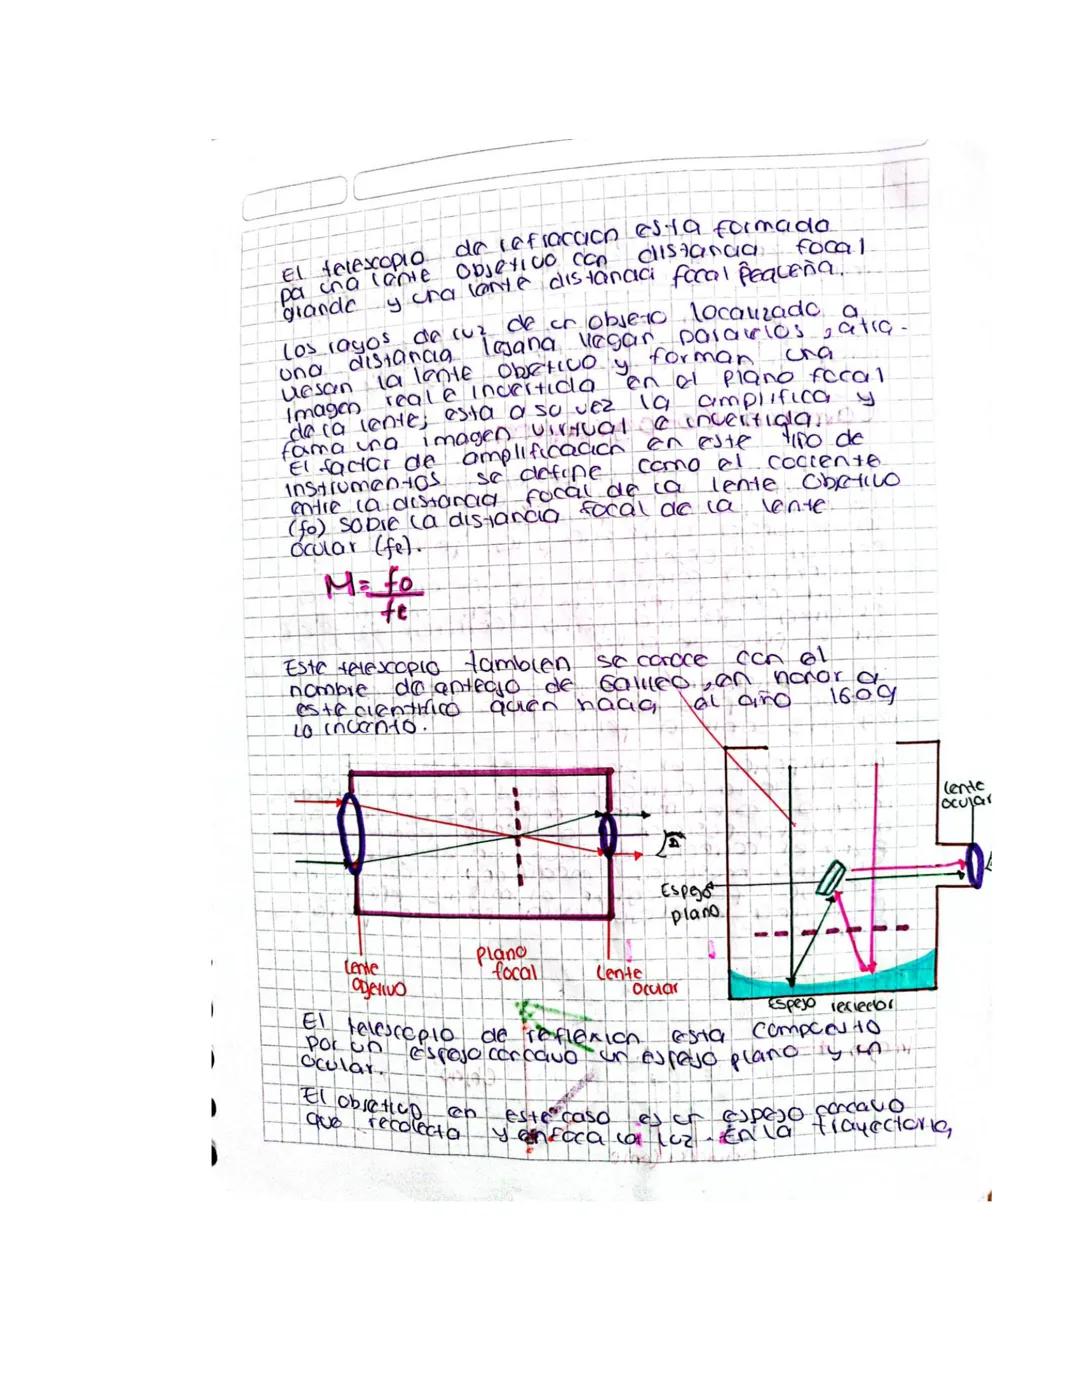 El telescopio de refracción está formado
pa una lente objetivo con distancia focal
grande y una lente distancai focal Pequeña.
Los rayos de luz de un objeto localizado a
una distancia lejana llegan paralelos, atra-
viesan la lente objetivo y forman una
imagen real e invertida en el plano focal
de la lente; esta a su vez la amplifica y
forma una imagen virtual e invertida.
El factor de amplificación en este tipo de
instrumentos se define como el cociente
entre la distancia focal de la lente objetivo
(fo) sobre la distancia focal de la lente
ócular (fe).
M = fo
fe
Este telescopio también se conoce con el
nombre de anteojo de Galileo, en honor a
este científico quien hacia al año 1609
lo invento.
lente ocular
Espejo plano
lente objetivo
plano focal
lente ocular
Espejo reflector
El telescopio de reflexion esta compuesto
por un espejo concavo un espejo plano y un
ocular.
El objetivo en este caso es un espejo concavo
que recolecta y enfoca la luz. En la trayectoria,